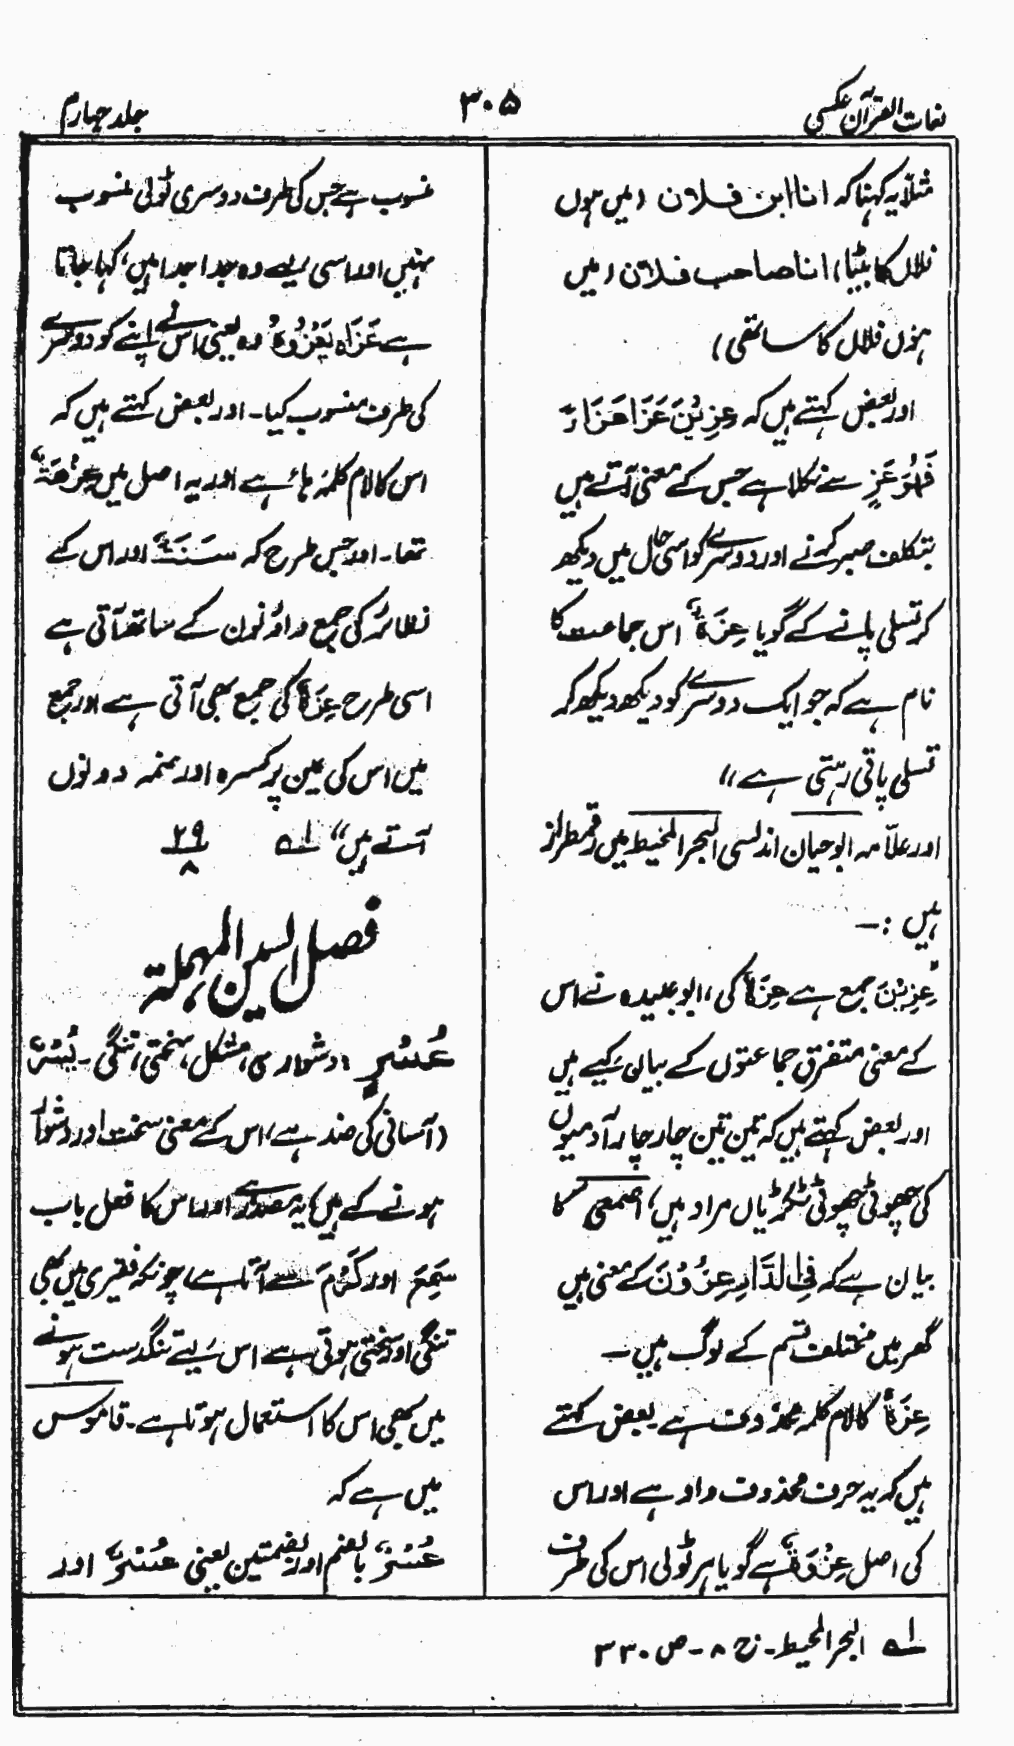 لغات القرآن عکسی
۳۰۵
جلد چہارم
مثلاً یہ کہنا کہ انا ابن فلان (میں ہوں
فلاں کا بیٹا) انا صاحب فلان (میں
ہوں فلاں کا ساتھی)
اور بعض کہتے ہیں کہ عِزِیْنَ عَزَا عَزَاءً
فَھُوَ عَزٍ سے نکلا ہے جس کے معنی آتے ہیں
بتکلف صبر کرنے اور دوسرے کو اسی حال میں دیکھ
کر تسلی پانے کے گویا عِزَۃٌ اس جماعت کا
نام ہے کہ جو ایک دوسرے کو دیکھ دیکھ کر
تسلی پاتی رہتی ہے"
اور علاّمہ ابو حیان اندلسی البحر المحیط میں رقمطراز
ہیں :—
عِزِیْنَ جمع ہے عِزَۃٌ کی، ابو عبیدہ نے اس
کے معنی متفرق جماعتوں کے بیان کیے ہیں
اور بعض کہتے ہیں کہ تین تین چار چار آدمیوں
کی چھوٹی چھوٹی ٹکڑیاں مراد ہیں، اصمعی کا
بیان ہے کہ فِی الدَّارِ عِزُوْنَ کے معنی ہیں
گھر میں مختلف قسم کے لوگ ہیں۔
عِزَۃٌ کا لام کلمہ محذوف ہے بعض کہتے
ہیں کہ یہ حرف محذوف واو ہے اور اس
کی اصل عِزْوَۃٌ ہے گویا ہر ٹولی اس کی طرف
منسوب ہے جس کی طرف دوسری ٹولی منسوب
نہیں اور اسی لیے وہ جدا جدا ہیں، کہا جاتا
ہے عَزَاہ یَعْزُوْہُ وہ یعنی اس نے اپنے کو دوسرے
کی طرف منسوب کیا۔ اور بعض کہتے ہیں کہ
اس کا لام کلمہ ہاء ہے اور یہ اصل میں عِزْھَۃٌ
تھا۔ اور جس طرح کہ سَنَۃٌ اور اس کے
نظائر کی جمع واو نون کے ساتھ آتی ہے
اسی طرح عِزَۃٌ کی جمع بھی آتی ہے اور جمع
میں اس کی عین پر کسرہ اور ضمہ دونوں
آتے ہیں" ۱ے ۲۹
۸
فصل السین المہملۃ
عُسْرٍ : دشواری، مشکل، سختی، تنگی۔ یُسْرٌ
(آسانی کی ضد ہے) اس کے معنی سخت اور دشوار
ہونے کے ہیں یہ مصدر ہے اور اس کا فعل باب
سَمِعَ اور کَرُمَ سے آتا ہے، چونکہ فقیری میں بھی
تنگی اور سختی ہوتی ہے اس لیے تنگدست ہونے
میں بھی اس کا استعمال ہوتا ہے۔ قاموس
میں ہے کہ
عُسْرٌ بالضم اور بضمتین یعنی عُسُرٌ اور
۱ے البحر المحیط۔ ج ۸ - ص ۳۳۰